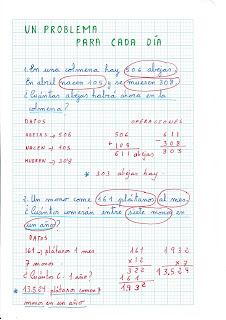 UN PROBLEMA
PARA CADA DÍA
1. En una colmena hay 506 abejas.
En abril nacen 105 y se mueren 308.
¿Cuántas abejas habrá ahora en la
colmena?
DATOS OPERACIONES
ABEJAS → 506 506 611
NACEN → 105 + 105 - 308
MUEREN → 308 611 abejas 303
* 303 abejas hay
2. Un mono come 161 plátanos al mes.
¿Cuántos comerán entre siete monos en
un año?
DATOS
161 → plátano 1 mes 161 1932
7 monos x12 x7
¿Cuánto C. 1 año? 322 13,524
161
1932
* 13,524 plátanos comen 7
monos en un año